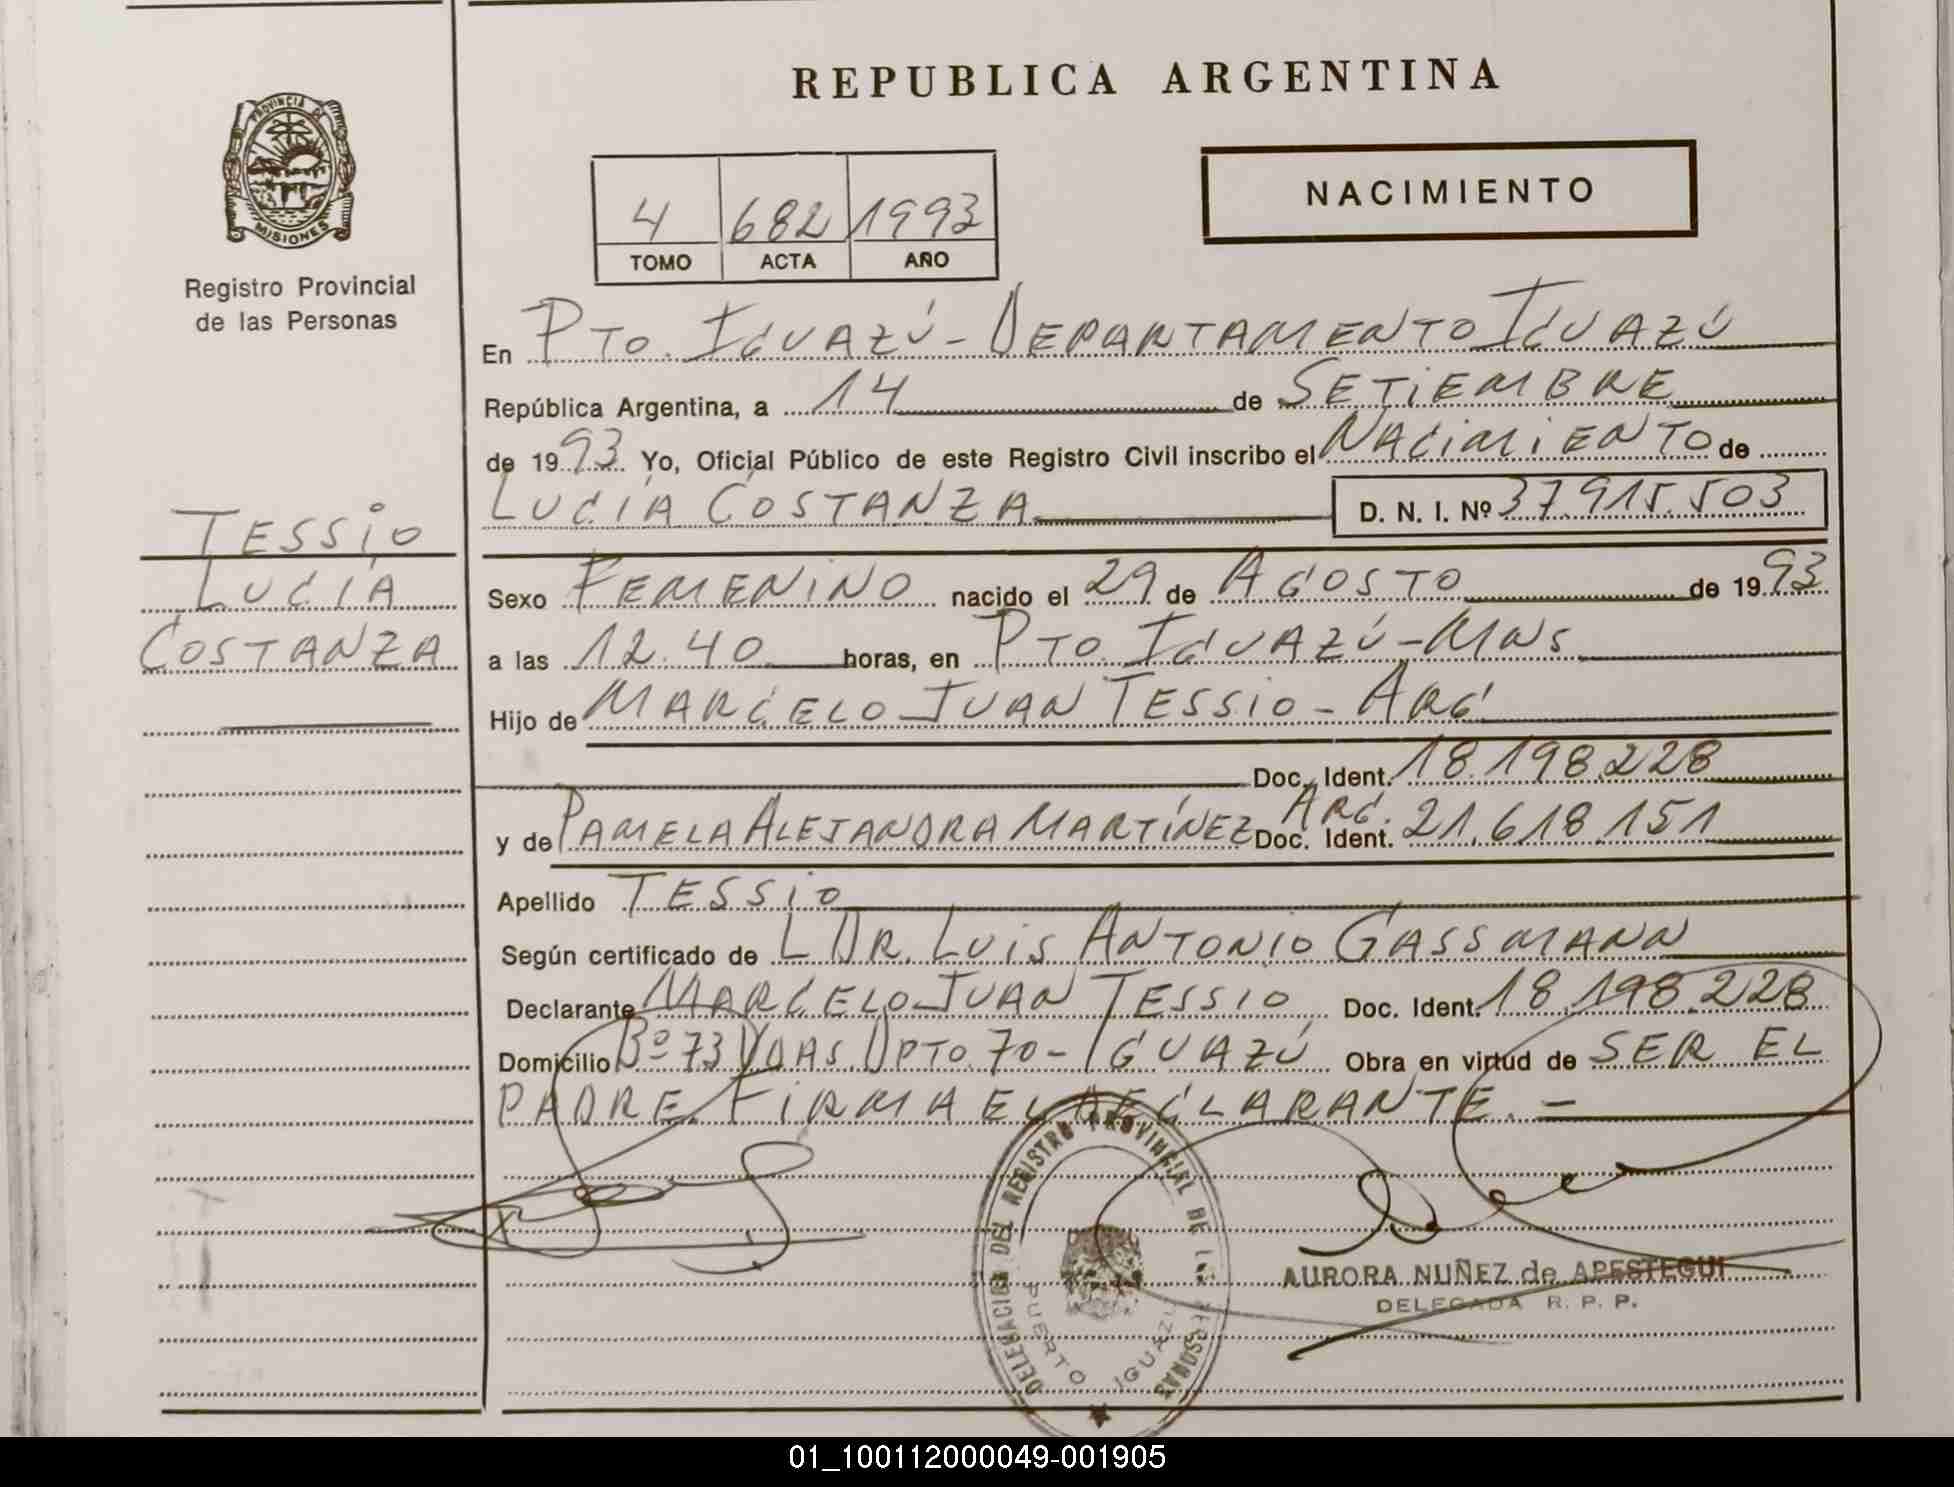 REPUBLICA ARGENTINA
PROVINCIA DE
MISIONES
Registro Provincial
de las Personas
NACIMIENTO
4 682 1993
TOMO ACTA AÑO
En Pto. Iguazú - Departamento Iguazú
República Argentina, a 14 de Setiembre
de 1993 Yo, Oficial Público de este Registro Civil inscribo el Nacimiento de
Lucía Costanza D. N. I. Nº 37.915.503
Tessio
Lucía
Costanza
Sexo Femenino nacido el 29 de Agosto de 1993
a las 12.40 horas, en Pto. Iguazú - Mns
Hijo de Marcelo Juan Tessio - Arg
Doc. Ident. 18.198.228
y de Pamela Alejandra Martínez Arg. Doc. Ident. 21.618.151
Apellido Tessio
Según certificado de Dr. Luis Antonio Gassmann
Declarante Marcelo Juan Tessio Doc. Ident. 18.198.228
Domicilio Bº 73 Vdas. Dpto. 70 - Iguazú Obra en virtud de ser el
padre. Firma el declarante. -
DELEGACION DEL REGISTRO PROVINCIAL DE LAS PERSONAS
PUERTO IGUAZU
AURORA NUÑEZ de APESTEGUI
DELEGADA R. P. P.
01_100112000049-001905